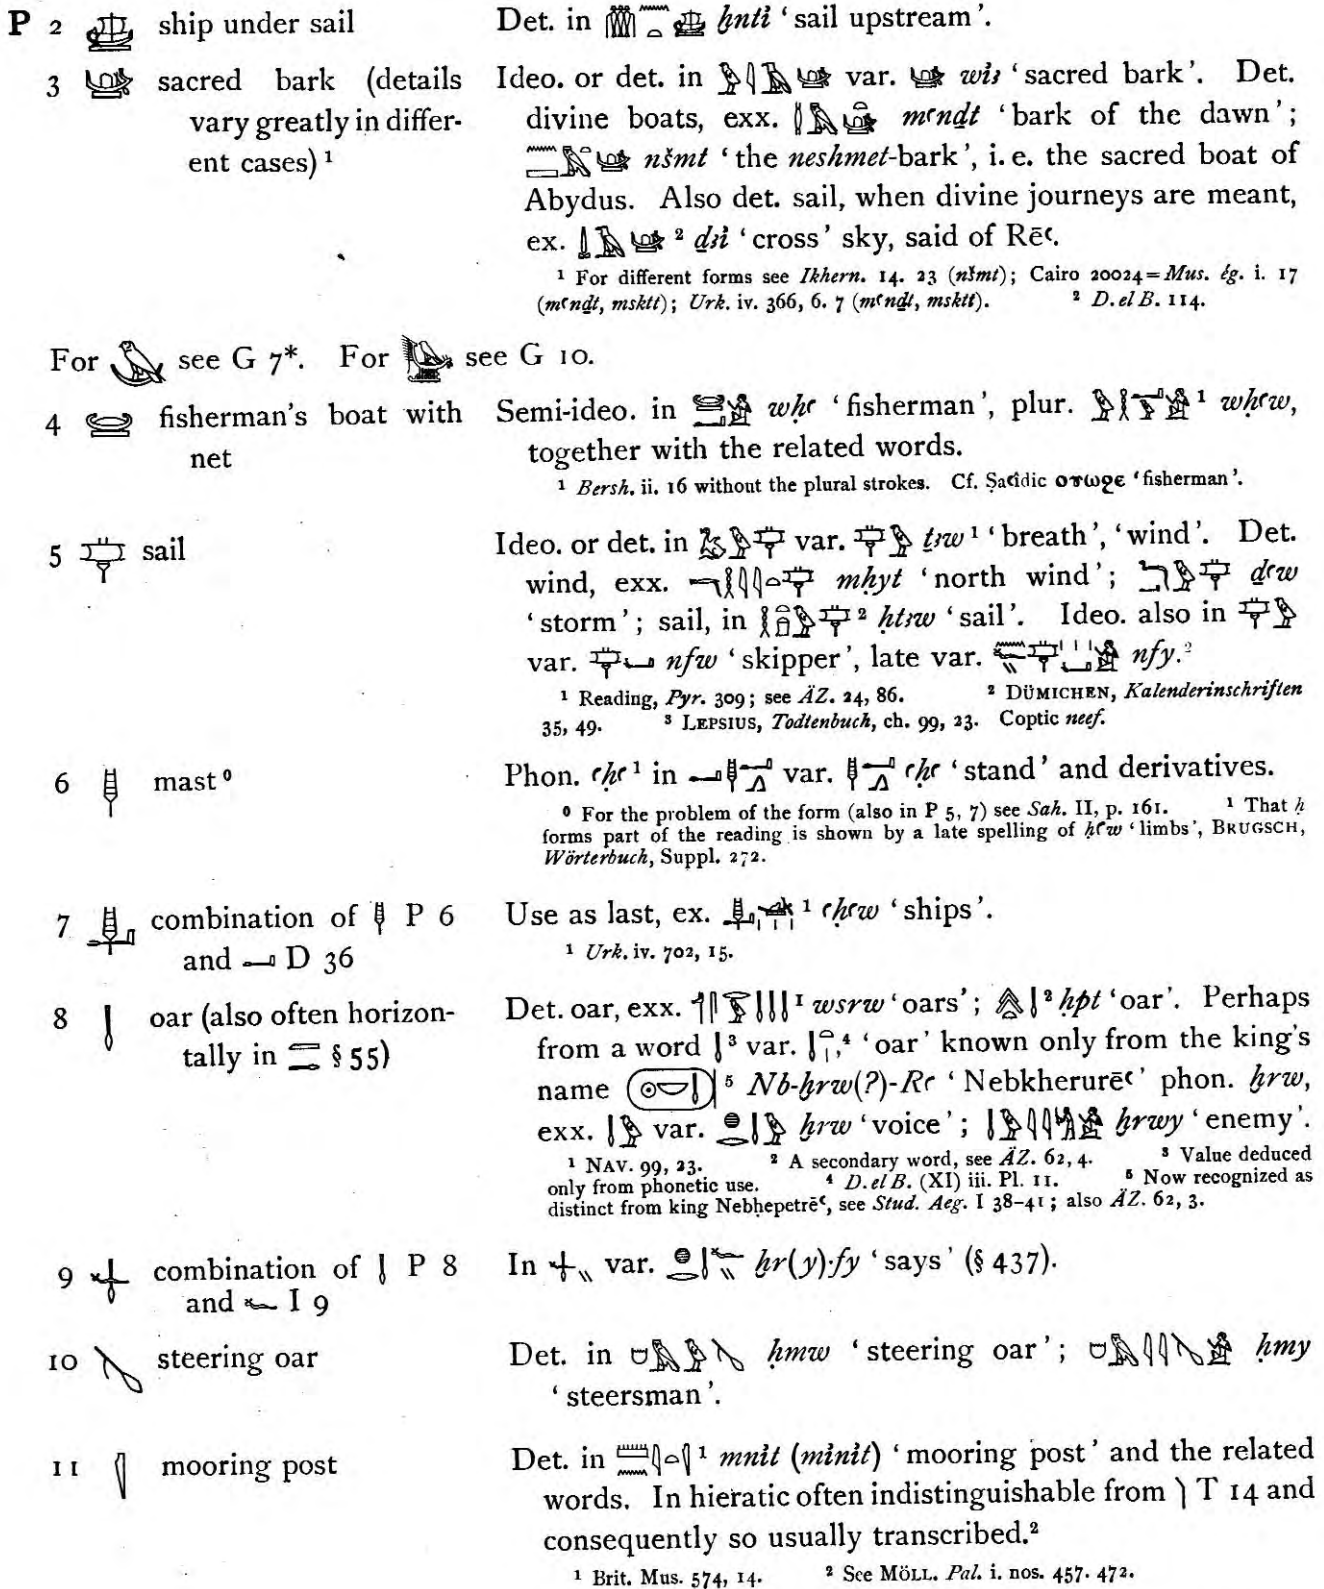 P 2 𓊞 ship under sail Det. in 𓏃𓈖𓏏𓊞 ḫntı͗ ‘sail upstream’.
3 𓊟 sacred bark (details Ideo. or det. in 𓅱𓇋𓄿𓊟 var. 𓊟 wı͗ꜣ ‘sacred bark’. Det.
vary greatly in differ- divine boats, exx. mꜥnḏt ‘bark of the dawn’;
ent cases)¹ nšmt ‘the neshmet-bark’, i.e. the sacred boat of
Abydus. Also det. sail, when divine journeys are meant,
ex. ² ḏꜣı͗ ‘cross’ sky, said of Rēꜥ.
¹ For different forms see Ikhern. 14. 23 (nšmt); Cairo 20024=Mus. ég. i. 17
(mꜥnḏt, msktt); Urk. iv. 366, 6. 7 (mꜥnḏt, msktt). ² D. el B. 114.
For 𓅇 see G 7*. For 𓅊 see G 10.
4 𓊡 fisherman's boat with Semi-ideo. in wḥꜥ ‘fisherman’, plur. ¹ wḥꜥw,
net together with the related words.
¹ Bersh. ii. 16 without the plural strokes. Cf. Ṣaꜥîdic ⲟⲩⲱϩⲉ ‘fisherman’.
5 𓊡 sail Ideo. or det. in var. ṯꜣw¹ ‘breath’, ‘wind’. Det.
wind, exx. mḥyt ‘north wind’; ḏꜥw
‘storm’; sail, in ² ḥtꜣw ‘sail’. Ideo. also in
var. nfw ‘skipper’, late var. nfy.²
¹ Reading, Pyr. 309; see ÄZ. 24, 86. ² DÜMICHEN, Kalenderinschriften
35, 49. ³ LEPSIUS, Todtenbuch, ch. 99, 23. Coptic neef.
6 𓊢 mast⁰ Phon. ꜥḥꜥ¹ in var. ꜥḥꜥ ‘stand’ and derivatives.
⁰ For the problem of the form (also in P 5, 7) see Sah. II, p. 161. ¹ That ḥ
forms part of the reading is shown by a late spelling of ḥꜥw ‘limbs’, BRUGSCH,
Wörterbuch, Suppl. 272.
7 𓊣 combination of 𓊢 P 6 Use as last, ex. ¹ ꜥḥꜥw ‘ships’.
and 𓂝 D 36 ¹ Urk. iv. 702, 15.
8 𓊤 oar (also often horizon- Det. oar, exx. ¹ wsrw ‘oars’; ² ḥpt ‘oar’. Perhaps
tally in § 55) from a word 𓊤³ var. ,⁴ ‘oar’ known only from the king's
name ⁵ Nb-ḫrw(?)-Rꜥ ‘Nebkherurēꜥ’ phon. ḫrw,
exx. 𓊤𓅱 var. 𓐍𓂋𓊤𓅱 ḫrw ‘voice’; ḫrwy ‘enemy’.
¹ NAV. 99, 23. ² A secondary word, see ÄZ. 62, 4. ³ Value deduced
only from phonetic use. ⁴ D. el B. (XI) iii. Pl. 11. ⁵ Now recognized as
distinct from king Nebḥepetrēꜥ, see Stud. Aeg. I 38–41; also ÄZ. 62, 3.
9 𓊥 combination of 𓊤 P 8 In 𓊥𓏭 var. 𓐍𓂋𓊤𓆑𓏭 ḫr(y)·fy ‘says’ (§ 437).
and 𓆑 I 9
10 𓊦 steering oar Det. in ḥmw ‘steering oar’; ḥmy
‘steersman’.
11 𓊧 mooring post Det. in ¹ mnı͗t (mı͗nı͗t) ‘mooring post’ and the related
words. In hieratic often indistinguishable from 𓌙 T 14 and
consequently so usually transcribed.²
¹ Brit. Mus. 574, 14. ² See MÖLL. Pal. i. nos. 457. 472.